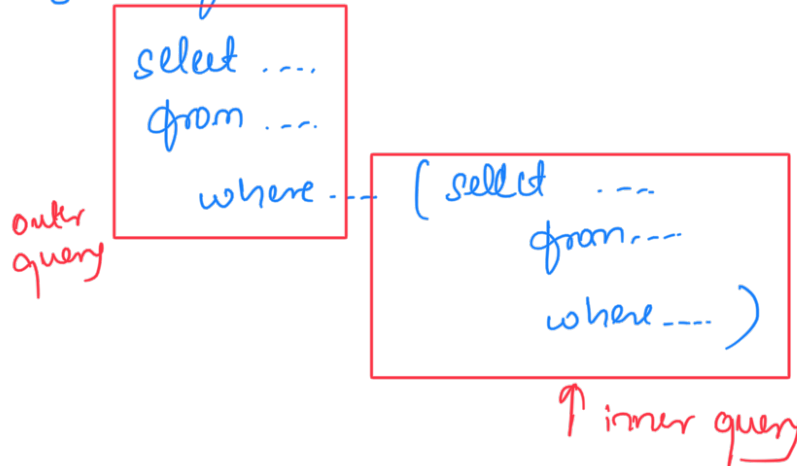 select ....
from ....
where .... (select ....
from ....
where ....)
outer
query
↑ inner query